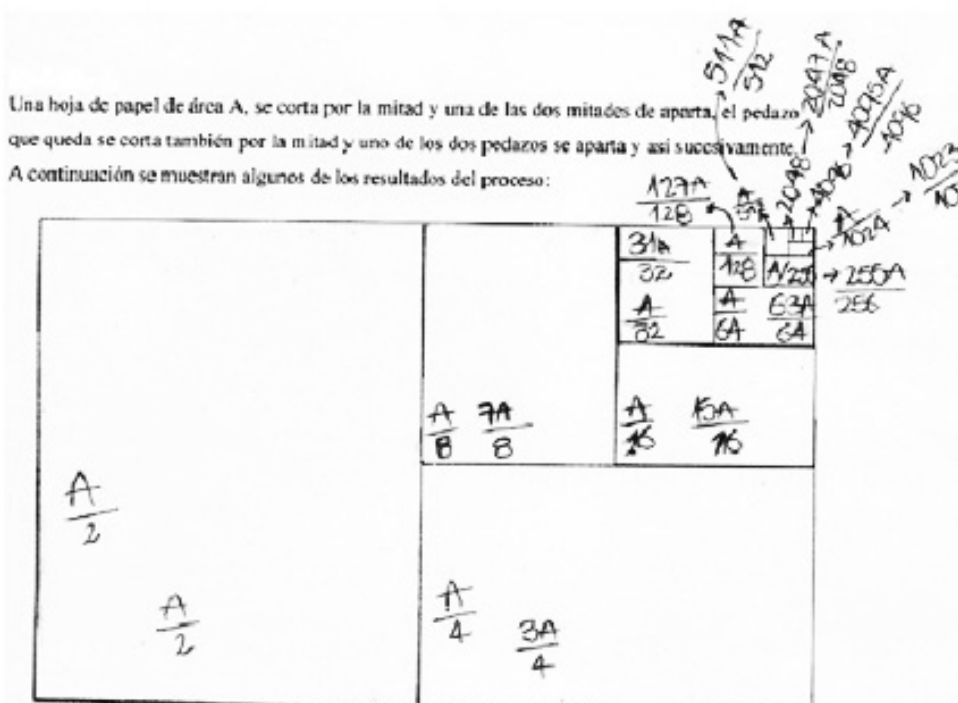 Una hoja de papel de área A, se corta por la mitad y una de las dos mitades de aparta, el pedazo
que queda se corta también por la mitad y uno de los dos pedazos se aparta y asi sucesivamente.
A continuación se muestran algunos de los resultados del proceso:
511A/512
2047A/2048
4095A/4096
127A/128
2048
4096
A/1024
31A/32
A/128
A/256
255A/256
A/32
A/64
63A/64
A/8 7A/8
A/16 15A/16
A/2
A/2
A/4
3A/4